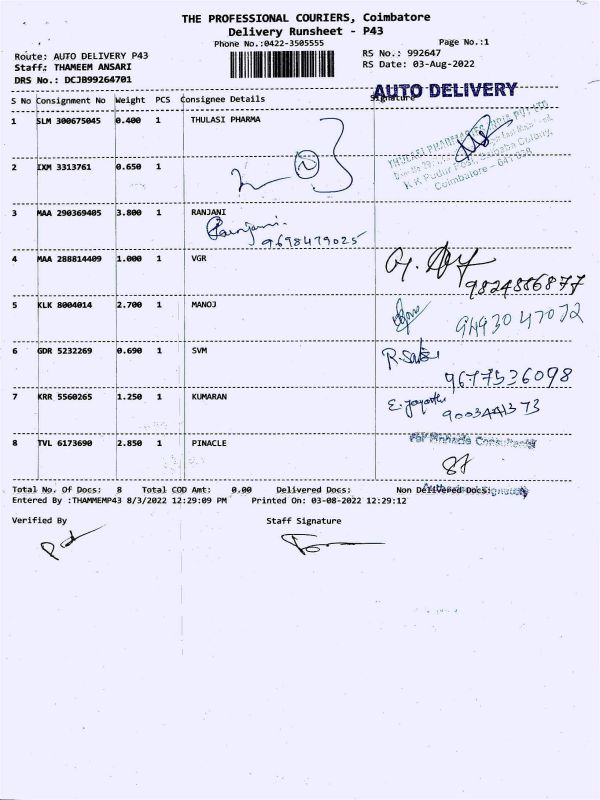 THE PROFESSIONAL COURIERS, Coimbatore
Delivery Runsheet - P43
Phone No.:0422-3505555 Page No.:1
Route: AUTO DELIVERY P43 RS No.: 992647
Staff: THAMEEM ANSARI RS Date: 03-Aug-2022
DRS No.: DCJB99264701
AUTO DELIVERY
S No Consignment No Weight PCS Consignee Details Signature
1 SLM 300675045 0.400 1 THULASI PHARMA
THULASI PHARMACIES INDIA PVT LTD
K K Pudur Post, Saibaba Colony,
Coimbatore - 641 038
2 IXM 3313761 0.650 1
3 MAA 290369405 3.800 1 RANJANI
Ranjani.
9698479025
4 MAA 288814409 1.000 1 VGR
9824886877
5 KLK 8004014 2.700 1 MANOJ
9493047072
6 GDR 5232269 0.690 1 SVM
9677536098
7 KRR 5560265 1.250 1 KUMARAN
E. Jayanthi
9003441373
8 TVL 6173690 2.850 1 PINACLE
For Pinnacle Consultants
Authorised Signatory
Total No. Of Docs: 8 Total COD Amt: 0.00 Delivered Docs: Non Delivered Docs:
Entered By :THAMMEMP43 8/3/2022 12:29:09 PM Printed On: 03-08-2022 12:29:12
Verified By Staff Signature